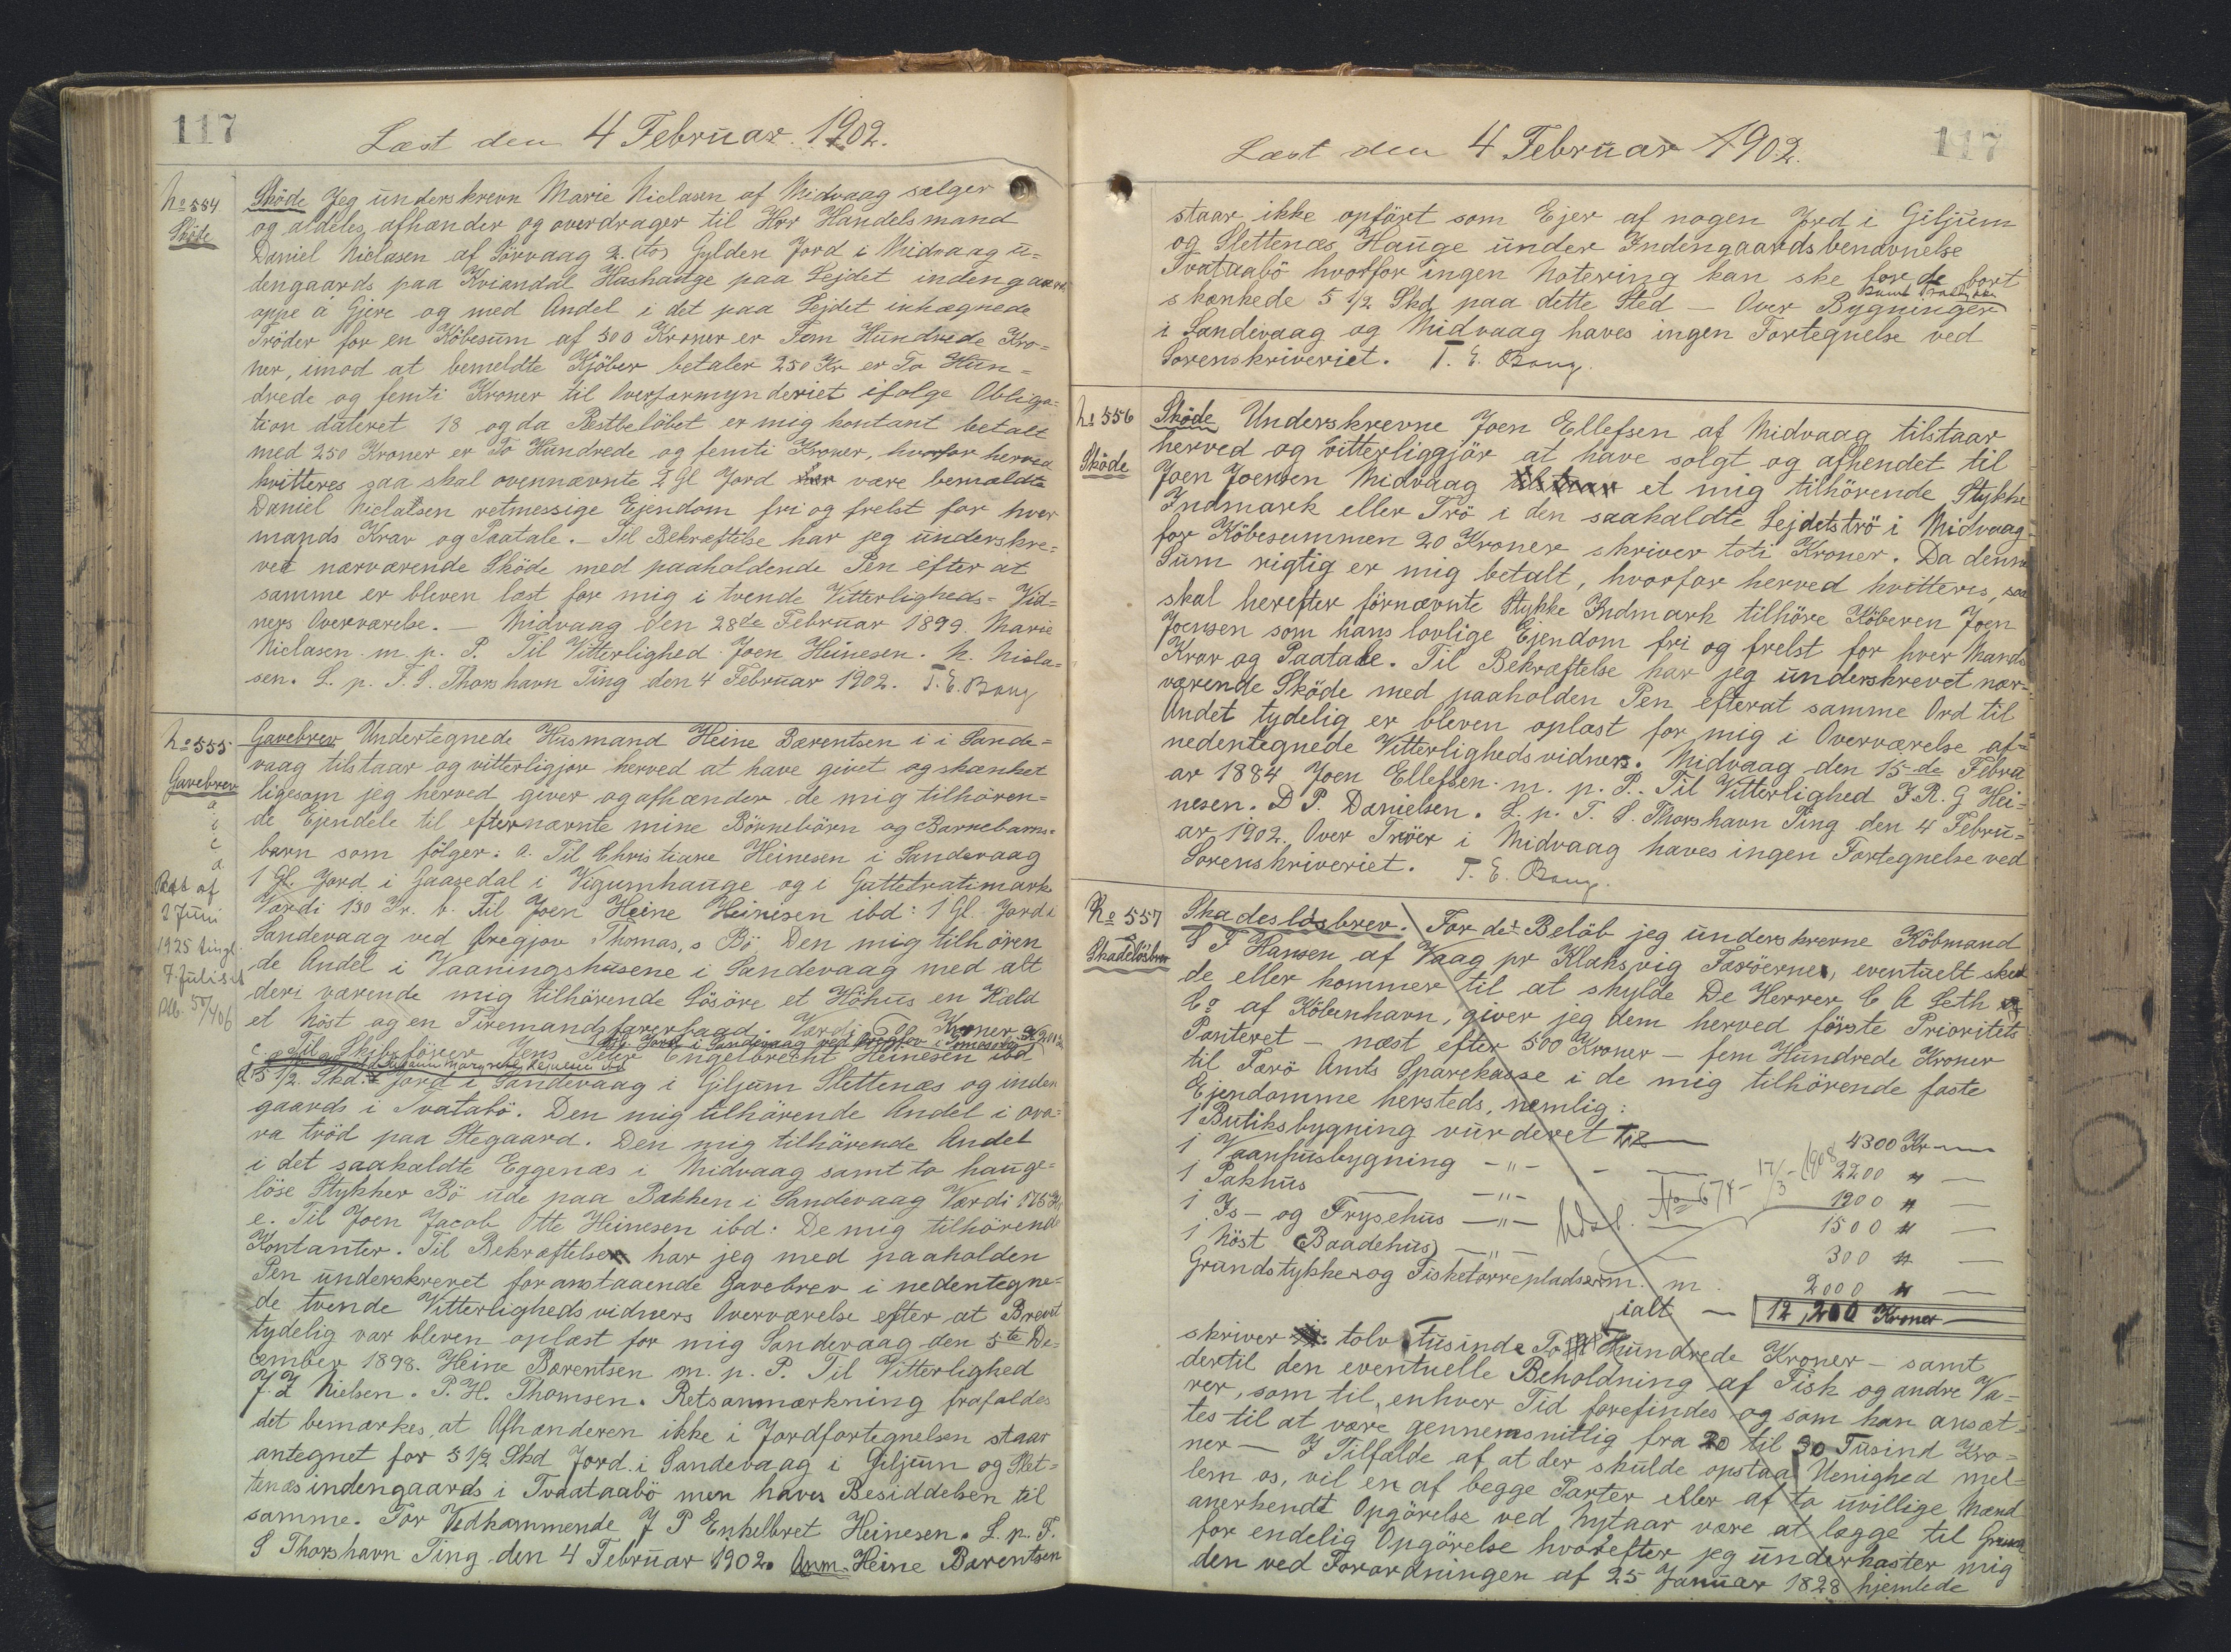 117
Læst den 4 Februar. 1902.
No 554
Sköde
Sköde Jeg underskrevn Marie Niclasen af Midvaag sælger
og aldeles afhænder og overdrager til Hor Handelsmand
Daniel Niclasen af Sörvaag 2. (to) Gylden Jord i Midvaag u=
dengaards paa Kviandal Hashauge paa Lejdet indengaards
oppe á Gjere og med Andel i det paa Lejdet inhægnede
Tröder for en Köbesum af 500 Kroner er Fem Hundrede Kro=
ner, imod at bemeldte Kjöber betaler 250 Kr er To Hun=
drede og femti Kroner til Overformynderiet ifolge Obliga=
tion dateret 18 og da Restbelöbet er mig kontant betalt
med 250 Kroner er To Hundrede og femti Kroner, hvorfor herved
kvitteres saa skal ovennævnte 2 Gl Jord være bemældte
Daniel Niclassen retmessige Ejendom fri og frelst for hver
mands Krav og Paatale. - Til Bekræftilse har jeg underskre=
vet nærværende Sköde med paaholdende Pen efter at
samme er bleven læst for mig i tvende Vitterligheds= Vid=
ners Overværelse. — Midvaag den 28de Februar 1899. Marie
Niclasen. m. p. P. Til Vitterlighed. Joen Heinesen. N. Nicla=
sen. L. p. F. S. Thorshavn Ting den 4 Februar 1902. T. E. Bang
No 555
Gavebrev
a
c
d
Ret af
2 Juni
1925 tingl.
7 Juli s.A
Gavebrev Undertegnede Husmand Heine Bærentsen i i Sande=
vaag tilstaar og vitterligjör herved at have givet og skænket
ligesom jeg herved giver og afhænder de mig tilhören=
de Ejendele til efternævnte mine Börnebörn og Barnebarns=
børn som fölger: a. Til Christiane Heinesen i Sandevaag
1 Gl. Jord i Gaasedal i Vigumhauge og i Gattetratimark
Værdi 130 Kr. b. Til Joen Heine Heinesen ibd: 1 Gl. Jord i
Sandevaag ved Gregjov Thomas,s Bö. Den mig tilhören
de Andel i Vaaningshusene i Sandevaag med alt
deri værende mig tilhörende Lösöre et Höhus en Kæld
et Nöst og en Tiremandsfarerbaad. Værdi 500 Kroner
c. Til Skibsförer Jens Peter Engelbrecht Heinesen ibd
5 1/2 Skd: Jord i Sandevaag i Giljum Slettenæs og inden
gaards i Tvatabö. Den mig tilhörende Andel i ova=
ra tröd paa Stegaard. Den mig tilhörende Andel
i det saakaldte Eggenæs i Midvaag samt to hauge=
löse Stykker Bö ude paa Bakken i Sandevaag Værdi 175 Kr
e. Til Joen Jacob Otte Heinesen ibd: De mig tilhörende
Kontanter. Til Bekræftelse har jeg med paaholden
Pen underskrevet foranstaaende Gavebrev i nedentegne=
de tvende Vitterlighedsvidners Overværelse efter at Brevet
tydelig var bleven oplæst for mig Sandevaag den 5te De=
cember 1898. Heine Bærentsen m. p. P. Til Vitterlighed
J. Z Nielsen. P. H. Thomsen. Retsanmærkning frafaldes
det bemærkes, at Afhænderen ikke i Jordfortegnelsen staar
antegnet for 5 1/2 Skd Jord i Sandevaag i Giljum og Slet=
tenæs indengaards i Tvaataabö men haves Besiddelsen til
samme. For Vedkommende J P Enkelbret Heinesen. L. p. F.
S Thorshavn Ting den 4 Februar 1902. Anm. Heine Bærentsen
117
Læst den 4 Februar 1902.
staar ikke opfört som Ejer af nogen Jord i Giljum
og Slettenæs Hauge under Indengaardsbenævnelse
Tvataabö hvorfor ingen Notering kan ske for de bort
skænkede 5 1/2 Skd paa dette Sted — Over Bygninger
i Sandevaag og Midvaag haves ingen Fortegnelse ved
Sorenskriveriet. T. E. Bang.
No 556
Sköde
Sköde Underskrevne Joen Ellefsen af Midvaag tilstaar
herved og vitterliggjör at have solgt og afhendet til
Joen Joensen Midvaag et mig tilhörende Stykke
Indmark eller Trö i den saakaldte Lejdetströ i Midvaag
for Köbesummen 20 Kroner skriver toti Kroner. Da denne
Sum rigtig er mig betalt, hvorfor herved kvitteres, saa
skal herefter förnævnte Stykke Indmark tilhöre Köberen Joen
Joensen som hans lovlige Ejendom fri og frelst for hver Mands
Krav og Paatale. Til Bekræftelse har jeg underskrevet nær=
værende Sköde med paaholden Pen efterat samme Ord til
andet tydelig er bleven oplæst for mig i Overværelse af=
nedentegnede Vitterlighedsvidners. Midvaag den 15-de Febru
ar 1884 Joen Ellefsen. m. p. P. Til Vitterlighed J. R. G Hei=
nesen. D P. Danielsen. L. p. T. S. Thorshavn Ting den 4 Febru=
ar, 1902. Over Tröer i Midvaag haves ingen Fortegnelse ved
Sorenskriveriet. T. E. Bang.
No 557
Skadelösbrev
Skadeslösbrev. For det Belöb jeg underskrevne Köbmand
S F Hansen af Vaag pr Klaksvig Færöerne, eventuelt skul
de eller kommer til at skylde De Herrer C A Leth &
Co af Köbenhavn, giver jeg dem herved förste Prioritets
Panteret — næst efter 500 Kroner — fem Hundrede Kroner
til Færö Amts Sparekasse i de mig tilhörende faste
Ejendomme hersteds, nemlig:
1 Butiksbygning vurderet til — 4300 Kr —
1 Vaanhusbygning - " - — 2200 " —
1 Pakhus — - " - — 1900 " —
1 Is- og Frysehus - " - — 1500 " —
1 Nöst (Baadehus) - " - — 300 " —
Grundstykker og Fisketörrepladser m. m. 2000 " —
Udsl. No 674 - 17/3 - 1908
ialt — 12,200 Kroner —
skriver tolv Tusinde To Hundrede Kroner — samt
dertil den eventuelle Beholdning af Fisk og andre Va=
rer, som til enhver Tid forefindes og som kan ansæt=
tes til at være gennemsnitlig fra 20 til 30 Tusind Kro=
ner — I Tilfælde af at der skulde opstaa Uenighed mel=
lem os, vil en af begge Parter eller af to uvillige Mænd
anerkendt Opgörelse ved Nytaar være at lægge til Grund
for endelig Opgörelse hvorefter jeg underkaster mig
den ved Forordningen af 25 Januar 1828 hjemlede